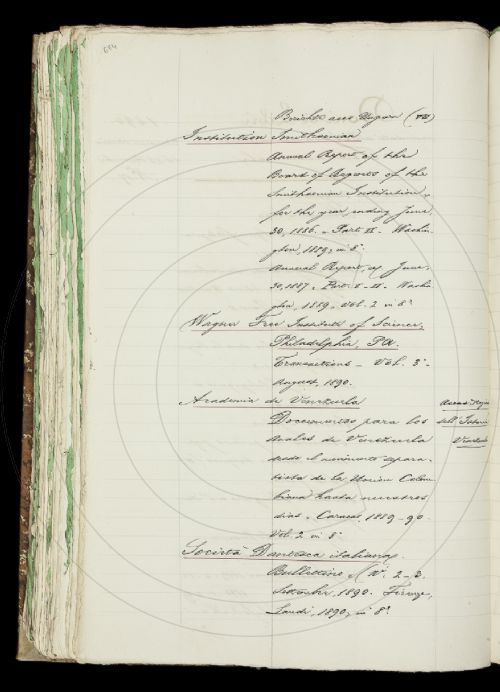 Berichte aus Ungarn (VII)
Institution Smithsonian
Annual Report of the
Board of Regents of the
Smithsonian Institution
for the year ending June
30, 1886. - Part II. Washin-
gton, 1889, in 8°
Annual Report, June
30, 1887. Part I-II. Washi-
gton, 1889. Vol. 2 in 8°
Wagner Free Institute of Science,
Philadelphia, PA.
Transactions - Vol. 3°
August, 1890.
Academia de Venezuela
Documentos para los
Anales de Venezuela
desde el movimiento separa-
tista de la Union Colom-
biana hasta nuestros
dias. Caracas, 1889-90
Vol. 2 in 8°
Società Dantesca italiana
Bullettino (N. 2-3.
Settembre, 1890. Firenze,
Landi, 1890, in 8°
dell'